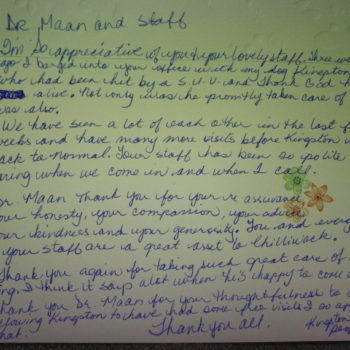 Dr. Maan and Staff
I'm so appreciative of you & your lovely staff. Three we
ago I barged into your office with my dog Kingston
who had been hit by a S.U.V. and thank God h
alive. Not only was he promtly taken care of
was also.
We have seen a lot of each other in the last f
eeks and have many more visits before Kingston i
ack to normal. Your staff has been so polite
aring when we come in and when I call.
Dr. Maan Thank you for your re assurance,
our honesty, your compassion, your advice
our kindness and your generosity. You and every
your staff are a great asset to Chilliwack.
Thank you again for taking such great care of
ing. I think it says alot when he's happy to come i
Thank you Dr. Maan for your thoughtfulness to
llowing Kingston to have had some free visits I so ap
hat.
Thank you all.
Kingston